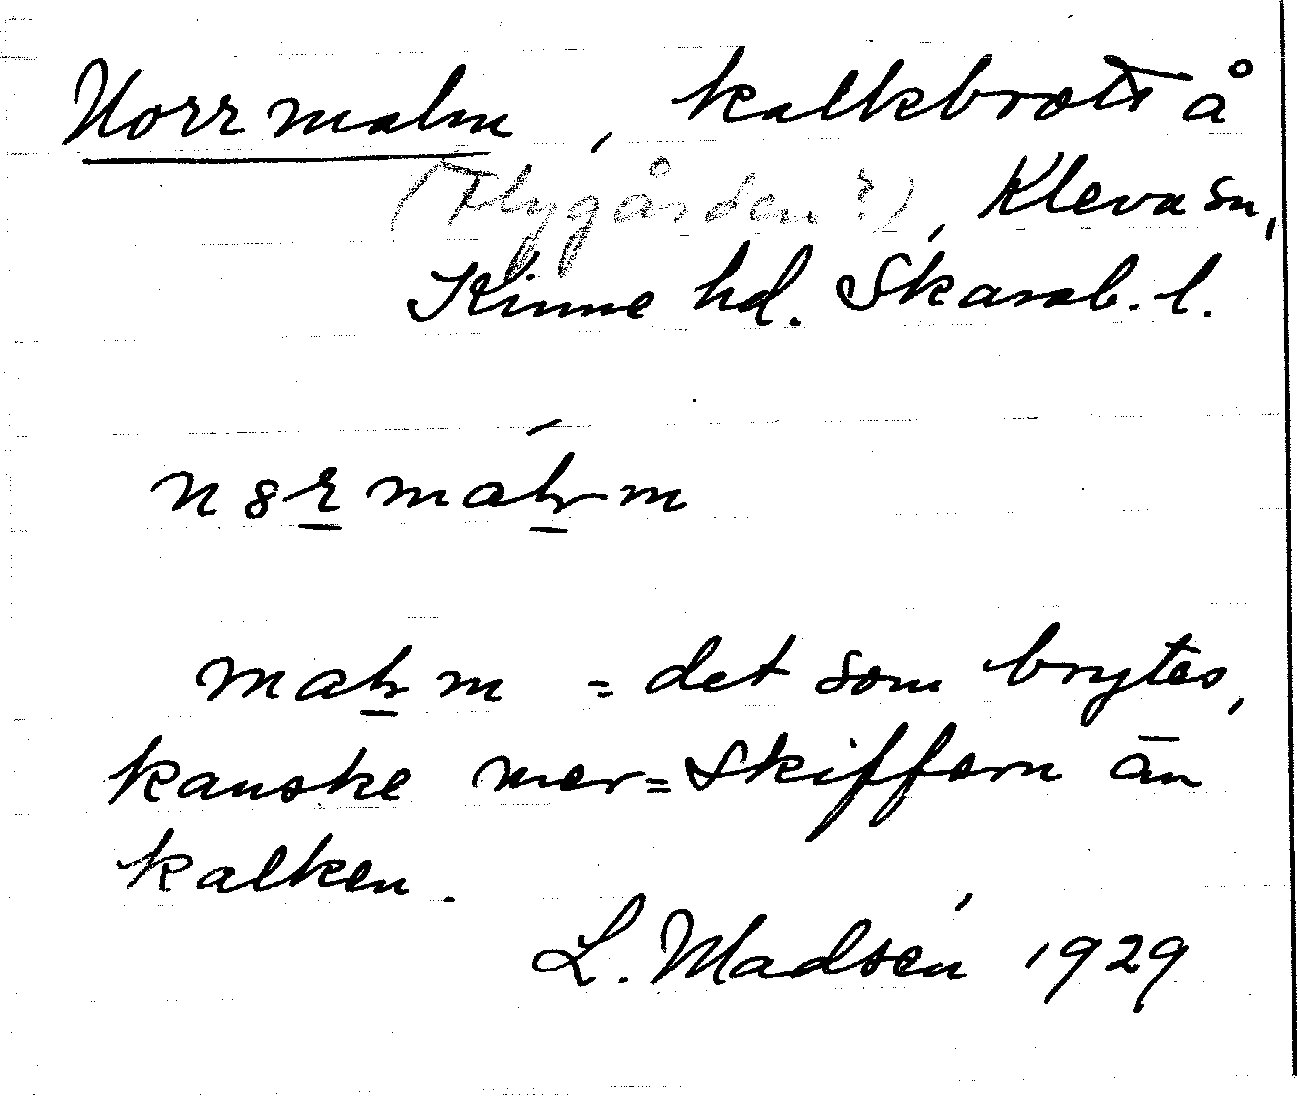 Norrmalm, kalkbrott å
(Flygården?), Kleva sn,
Kinne hd. Skarab. l.
n8rmáhm
mahm = det som brytes,
kanske mer = skiffern än
kalken.
L. Madsén 1929